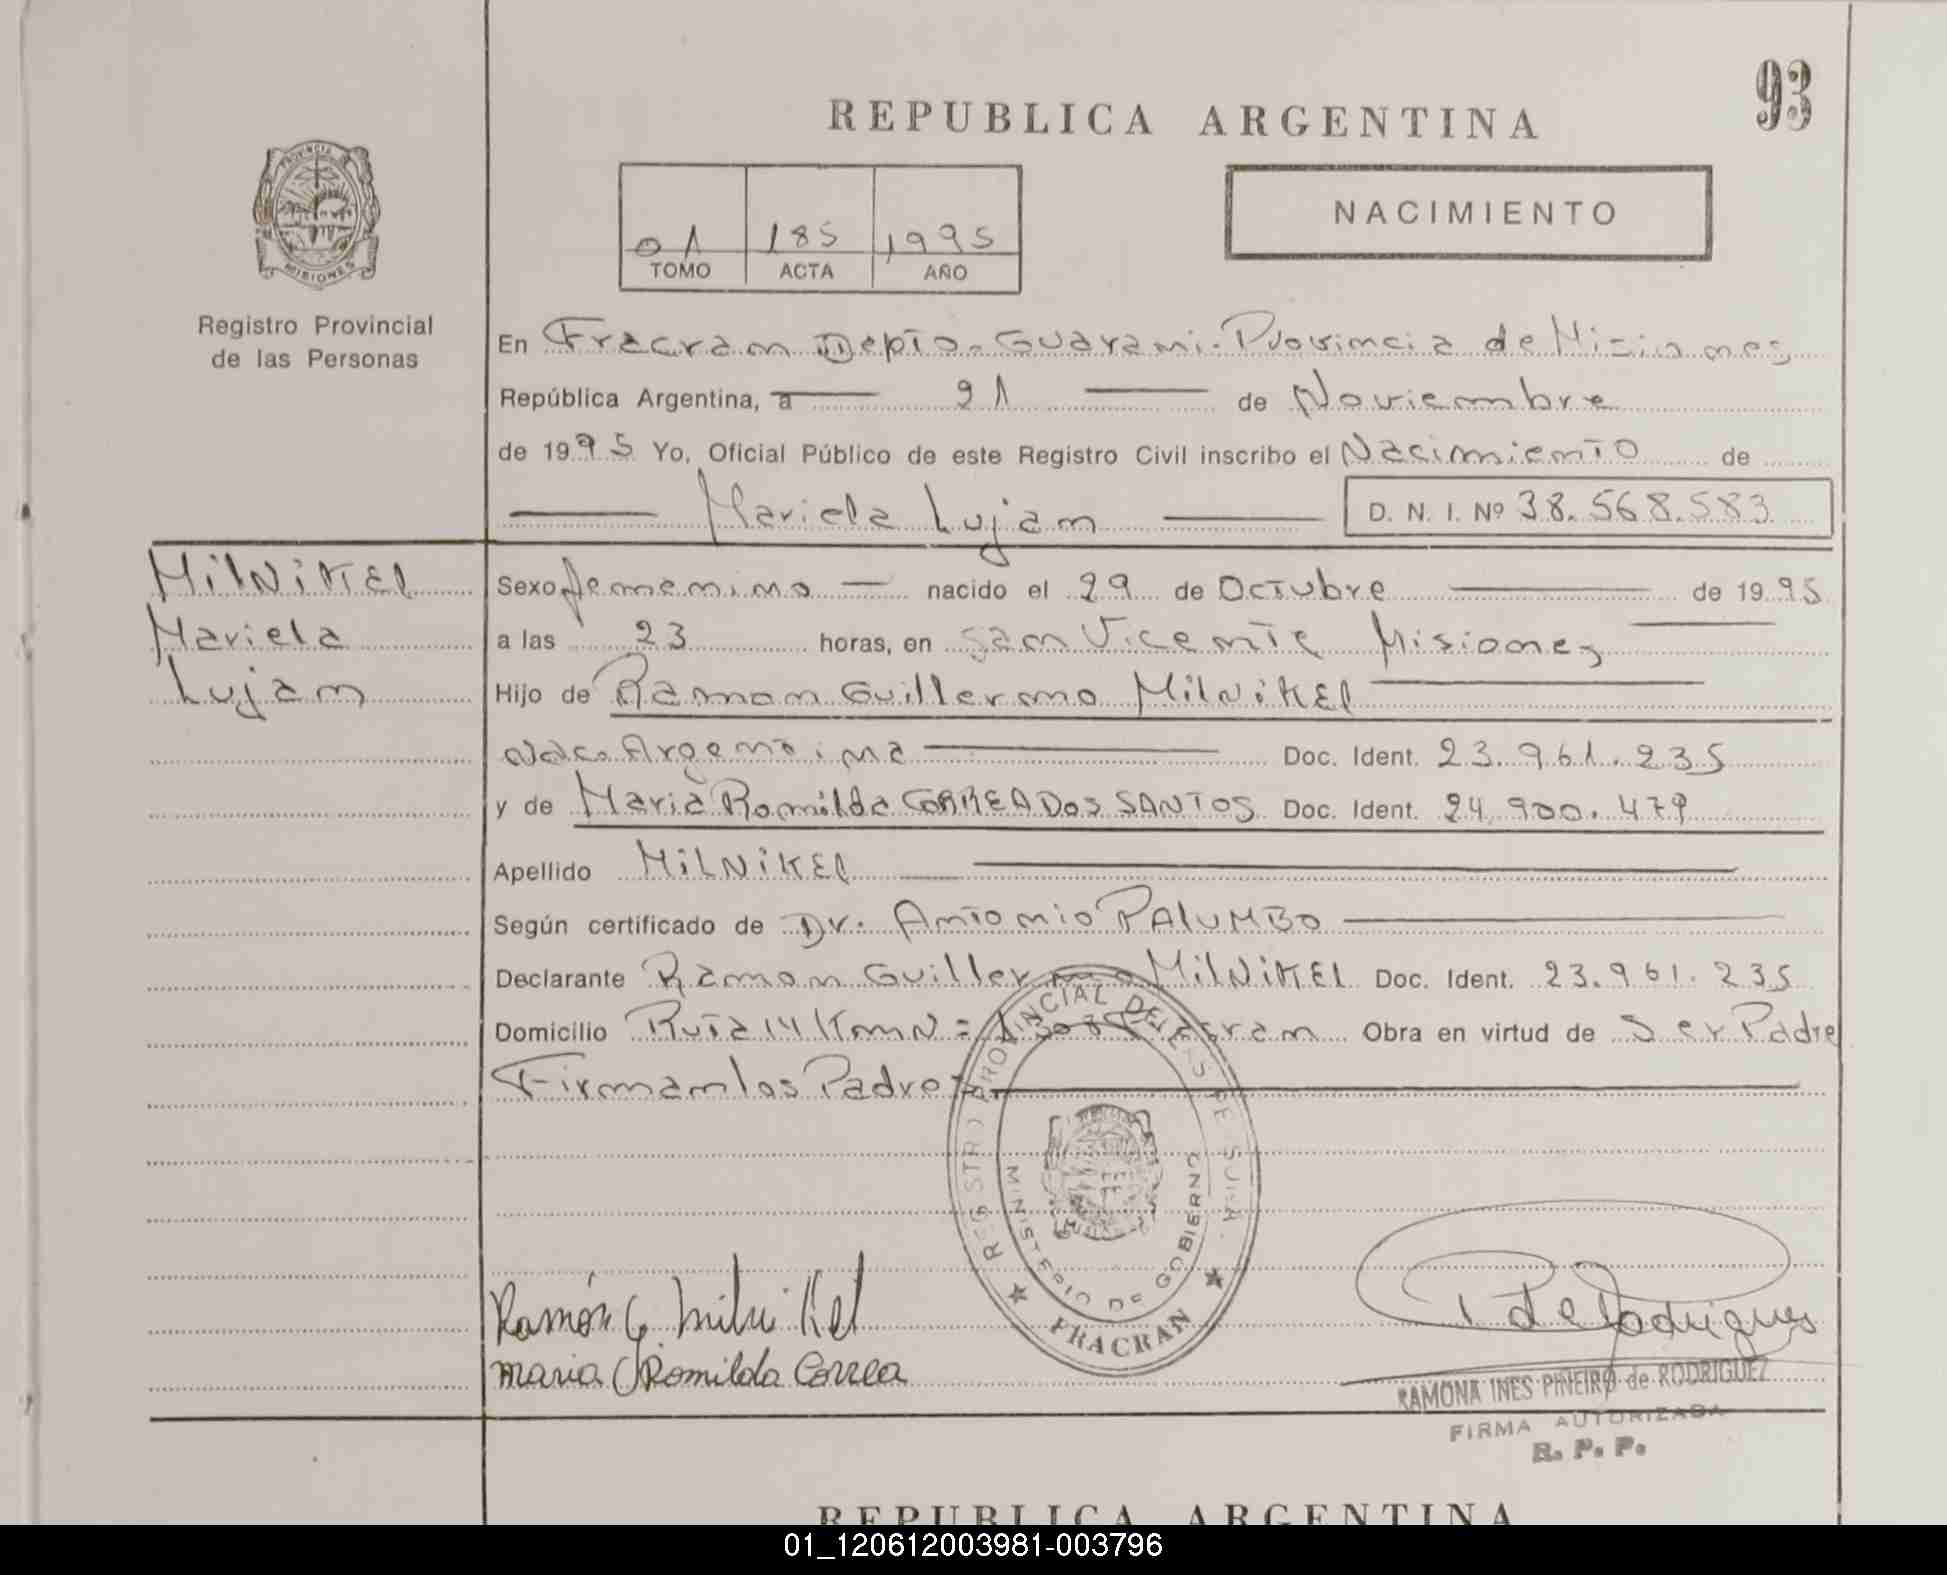 93
REPUBLICA ARGENTINA
PROVINCIA DE
MISIONES
Registro Provincial
de las Personas
01 185 1995
TOMO ACTA AÑO
NACIMIENTO
En Fracran Depto. Guarani. Provincia de Misiones
República Argentina, a 21 de Noviembre
de 1995 Yo, Oficial Público de este Registro Civil inscribo el Nacimiento de
Mariela Lujan D. N. I. Nº 38.568.583
MilNiKEl
Mariela
Lujan
Sexo femenino nacido el 29 de Octubre de 1995
a las 23 horas, en San Vicente Misiones
Hijo de Ramon Guillermo MilNiKEl
Nac. Argentina Doc. Ident. 23.961.235
y de Maria Romilda CORREA DOS SANTOS Doc. Ident. 24.900.479
Apellido MiLNiKEl
Según certificado de Dr. Antonio PAlUMBO
Declarante Ramon Guillermo MilNiKEl Doc. Ident. 23.961.235
Domicilio Ruta 14 Km N= Fracran Obra en virtud de Ser Padre
Firman los Padres
REGISTRO PROVINCIAL DE LAS PERSONAS
MINISTERIO DE GOBIERNO
FRACRAN
Ramón G Milnikel
Maria Romilda Correa
P de Rodriguez
RAMONA INES PIÑEIRO de RODRIGUEZ
FIRMA AUTORIZADA
R. P. P.
REPUBLICA ARGENTINA
01_120612003981-003796